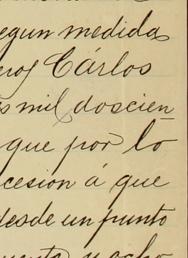 egun medida
eros Cárlos
s mil doscien
que por lo
cesion á que
desde un punto
uenta y ocho